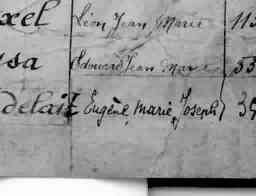 xel Léon Jean Marie 115
usa Edouard Jean Marie 55
delait Eugène, Marie, Joseph 39